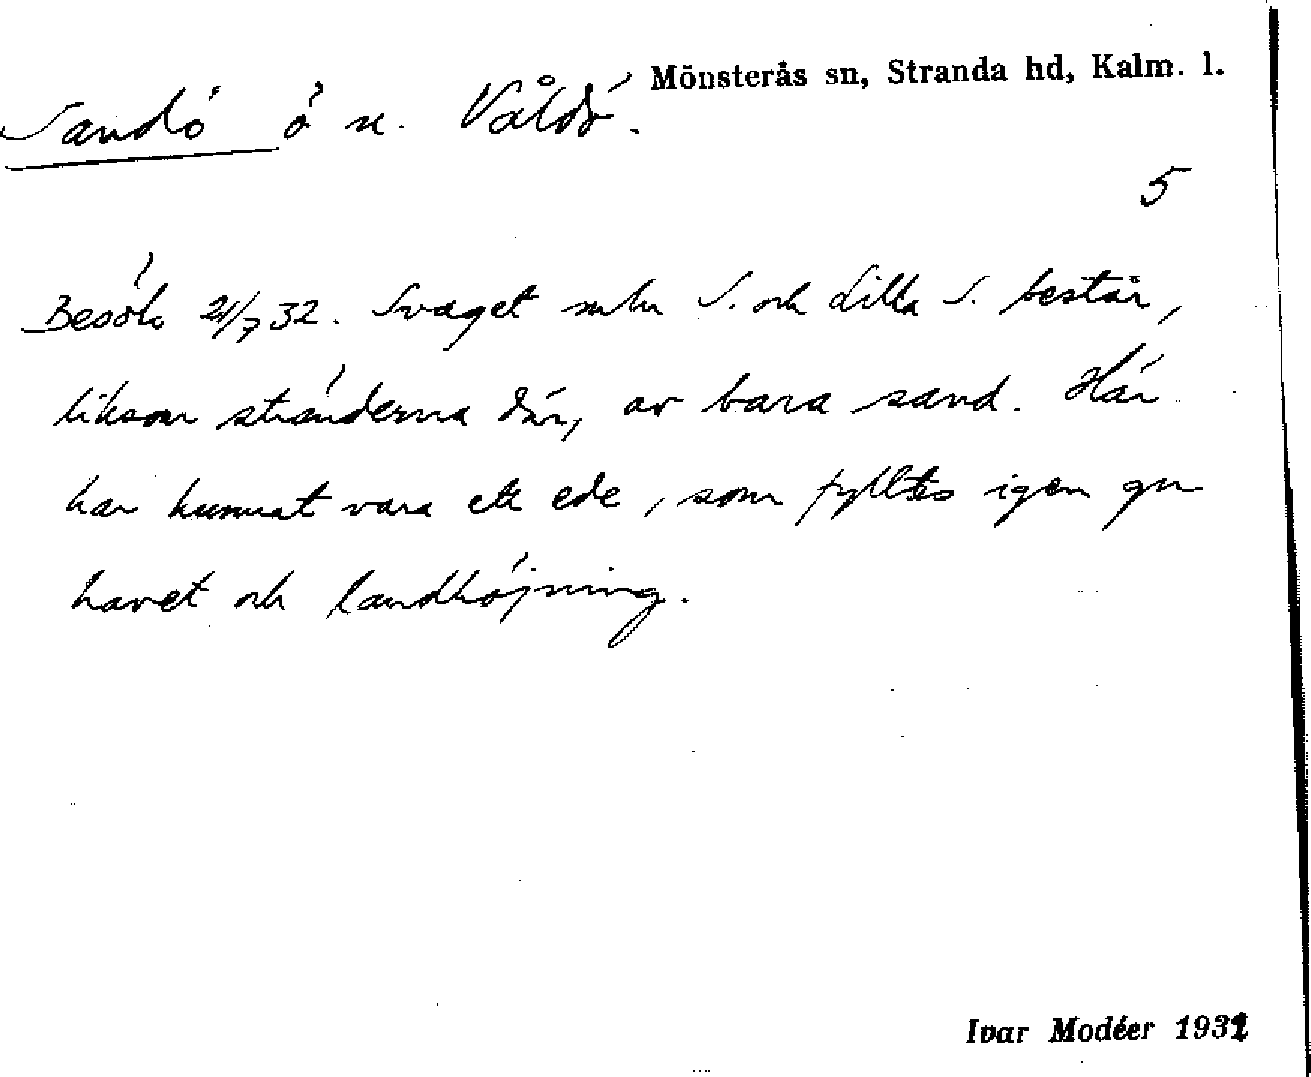 Mönsterås sn, Stranda hd, Kalm. l.
Sandö ö n. Våldö.
5
Besök 21/7 32. Svaget mln S. och Lilla S. består,
liksom stränderna där, av bara sand. Här
har kunnat vara ett ede, som fylltes igen gm
havet och landhöjning.
Ivar Modéer 1932